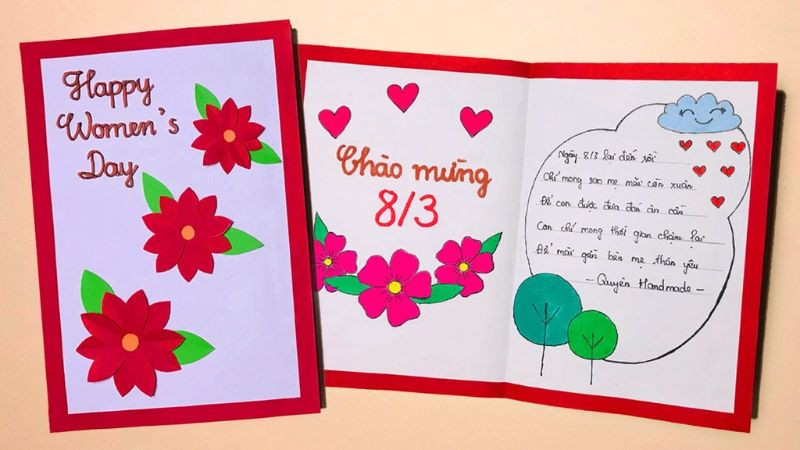 Happy
Women's
Day
Chào mừng
8/3
Ngày 8/3 lại đến rồi
Chỉ mong sao mẹ mãi còn xuân
Để con được đưa đón ân cần
Con chỉ mong thời gian chậm lại
Để mãi gần bên mẹ thân yêu
- Quyên Handmade -